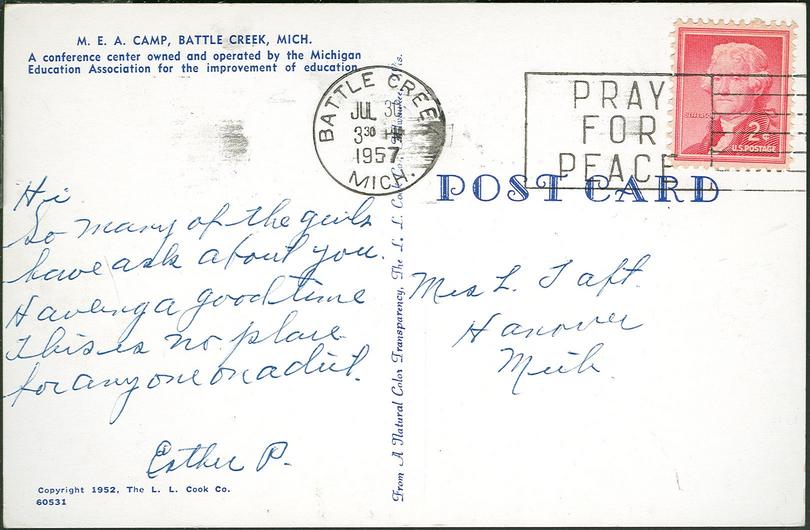 M. E. A. CAMP, BATTLE CREEK, MICH.
A conference center owned and operated by the Michigan
Education Association for the improvement of education.
BATTLE CREEK
JUL 30
3 30 PM
1957
MICH.
PRAY
FOR
PEACE
JEFFERSON
2¢
U.S. POSTAGE
POST CARD
Hi
So many of the girls
have ask about you.
Having a good time
This is no place
for anyone on a diet.
Esther P.
Mrs L. Taft.
Hanover
Mich.
From A Natural Color Transparency, The L. L. Cook Co., Milwaukee, Wis.
Copyright 1952, The L. L. Cook Co.
60531